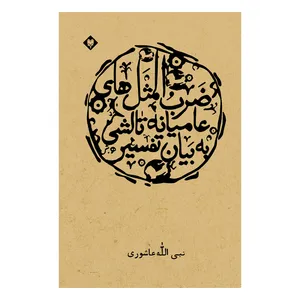 ضرب المثل های
عامیانه تالشی
به بیان تفسیر
نبی الله عاشوری